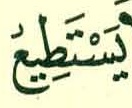 يَسْتَطِيعُ